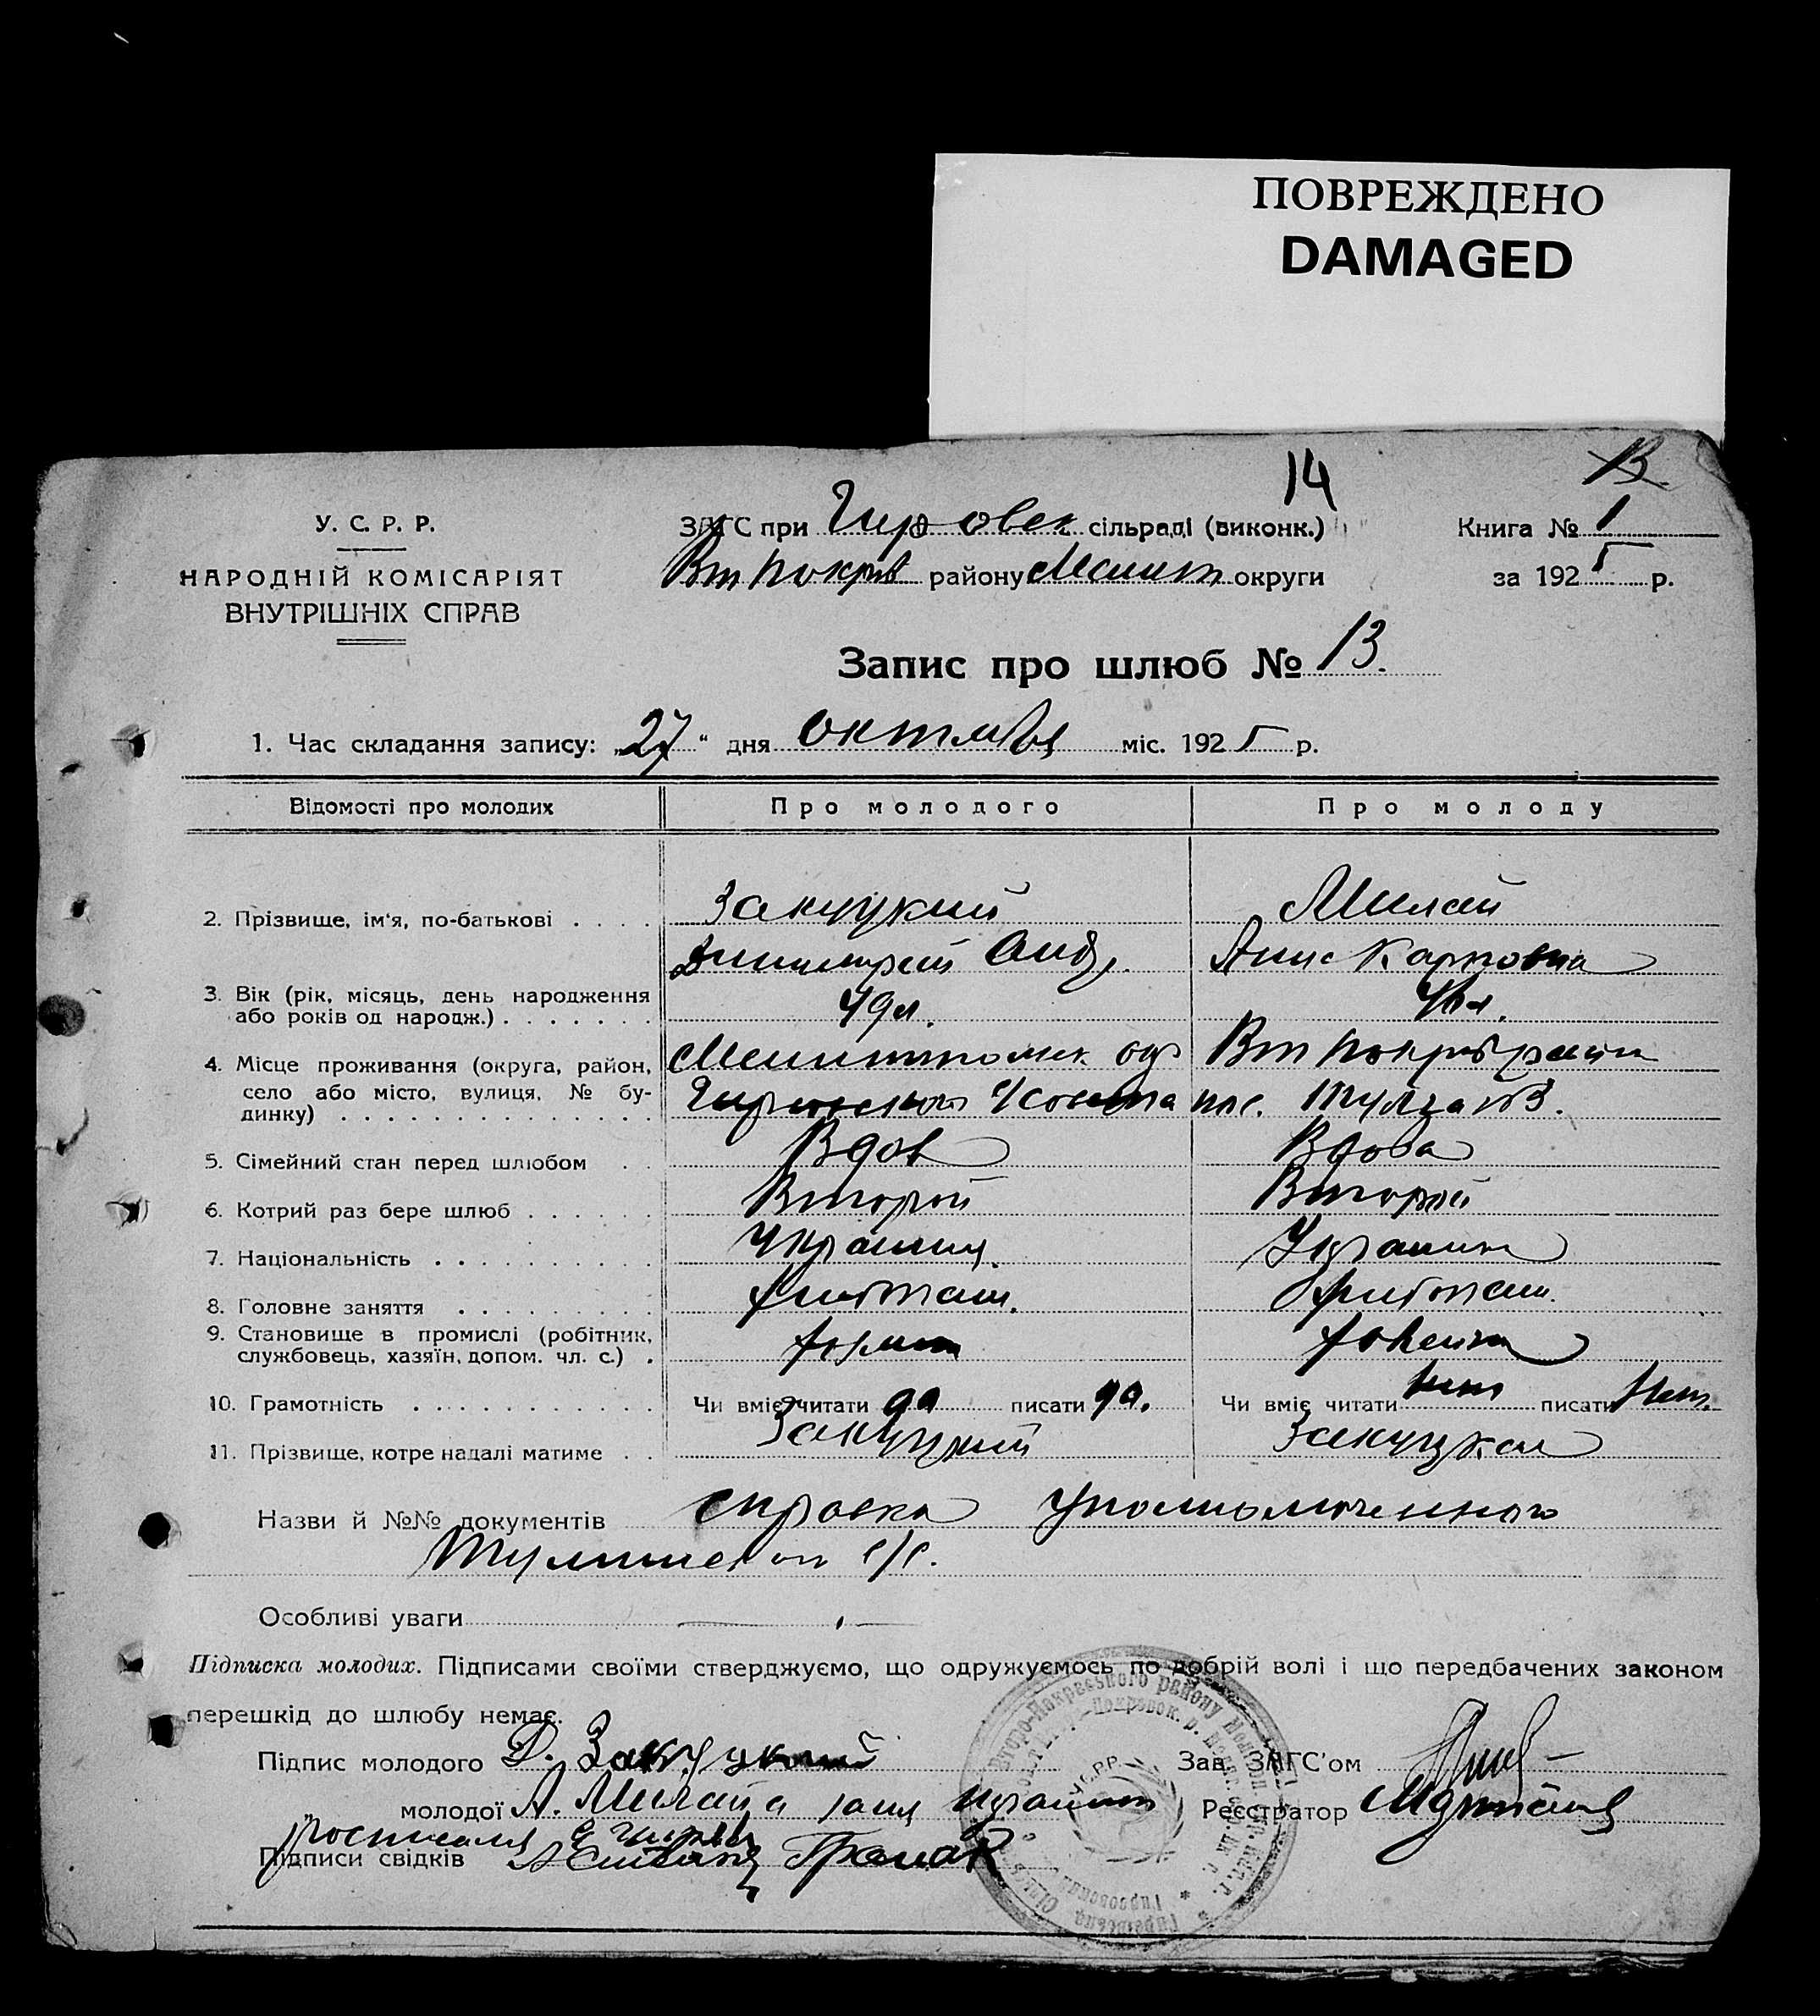 ПОВРЕЖДЕНО
DAMAGED
14
13.
У. С. Р. Р.
НАРОДНІЙ КОМІСАРІЯТ
ВНУТРІШНІХ СПРАВ
ЗАГС при Гировск сільраді (виконк.)
Вт Покров району Мелит округи
Книга № 1
за 1925 р.
Запис про шлюб № 13.
1. Час складання запису: „27“ дня октября міс. 1925 р.
Відомості про молодих Про молодого Про молоду
2. Прізвище, ім'я, по-батькові . . . . Закуцкий Милай
Димитрий Анд. Анна Карповна
3. Вік (рік, місяць, день народження
або років од народж.) . . . . . . . 49 л.
4. Місце проживання (округа, район,
село або місто, вулиця, № бу-
динку) . . . . . . . . . . . . . .
Мелитопольск. окр Вт Покров района
Гировского с/совета пос.
5. Сімейний стан перед шлюбом . . Вдов Вдова
6. Котрий раз бере шлюб . . . . . . Второй Второй
7. Національність . . . . . . . . . . Украинц. Украинка
8. Головне заняття . . . . . . . . . Хлебопаш. Хлебопаш.
9. Становище в промислі (робітник,
службовець, хазяїн, допом. чл. с.) . хозяин хозяйка
10. Грамотність . . . . . . . . . . . Чи вміє читати да писати да. Чи вміє читати нет писати Нет.
11. Прізвище, котре надалі матиме . . Закуцкий Закуцкая
Назви й №№ документів справка уполномоченного
с/с.
Особливі уваги
Підписка молодих. Підписами своїми стверджуємо, що одружуємось по добрій волі і що передбачених законом
перешкід до шлюбу немає.
Підпис молодого Д. Закуцкий Зав. ЗАГС'ом
„ молодої А. Милай а Реєстратор
Підписи свідків